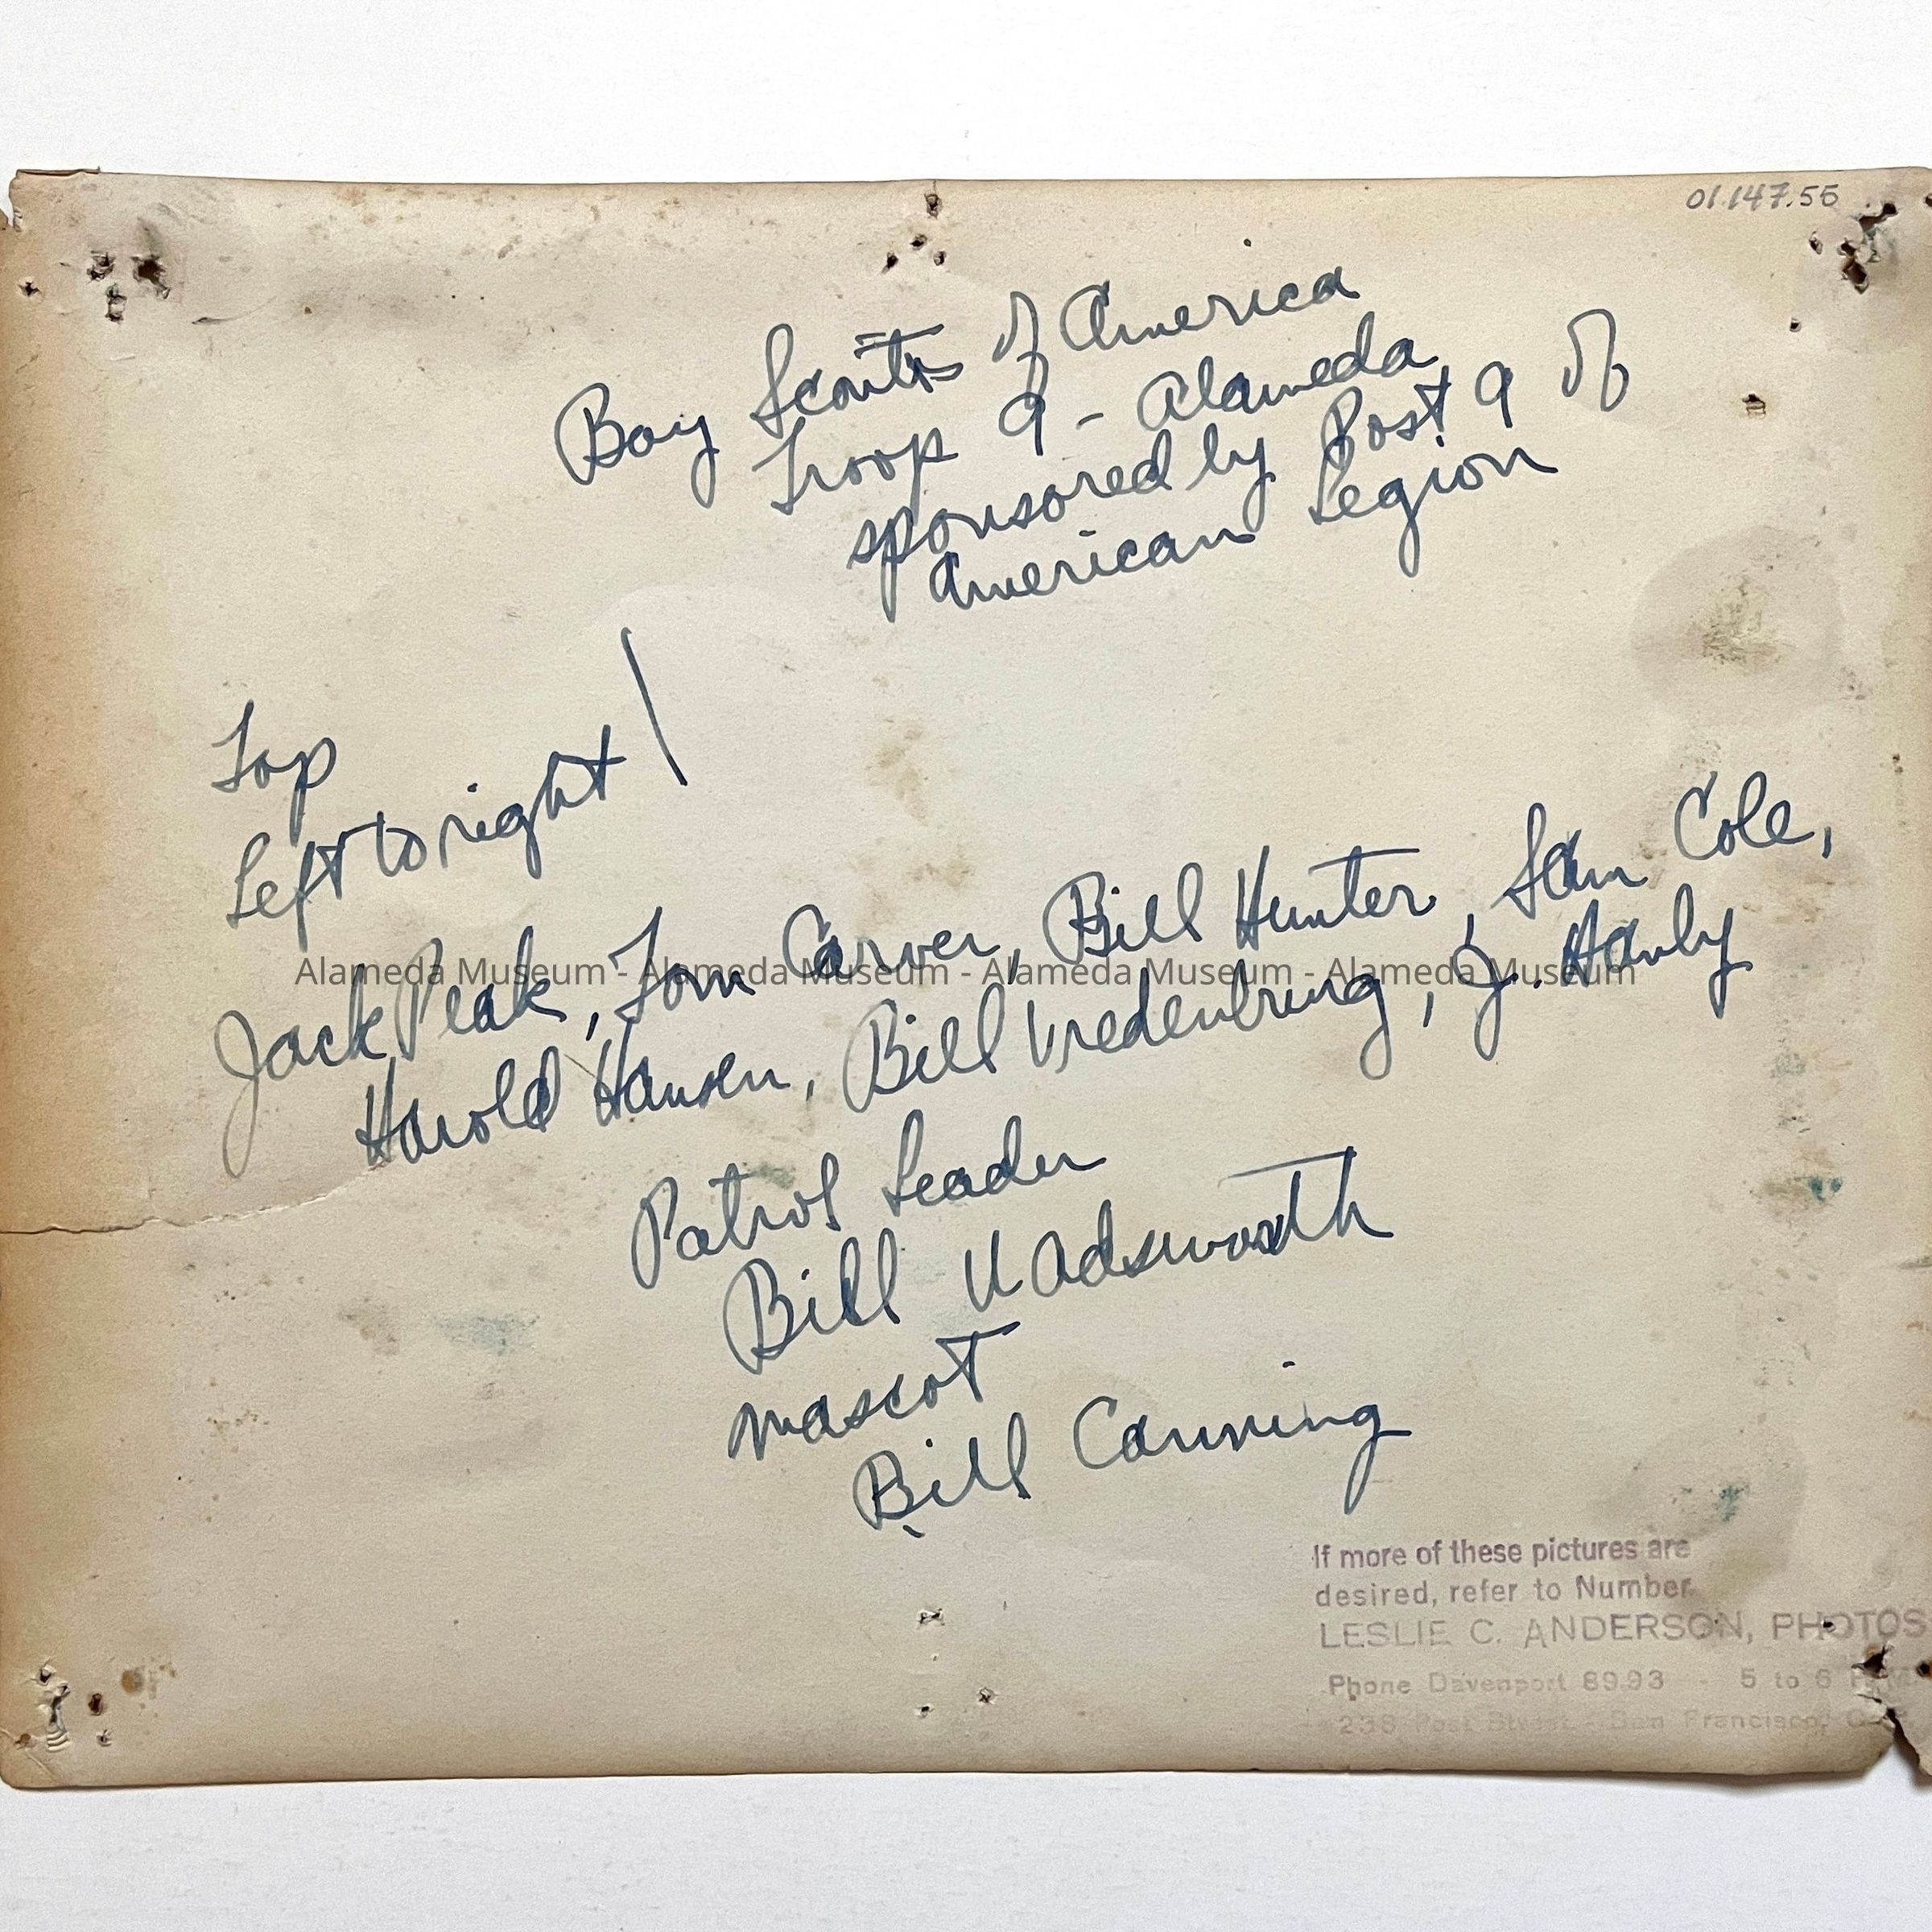 01.147.55
Boy Scouts of America
Troop 9 - Alameda
sponsored by Post 9 of
American Legion
Top
Left to right /
Jack Peak, Tom Carver, Bill Hunter, Sam Cole,
Alameda Museum - Alameda Museum - Alameda Museum - Alameda Museum
Harold Hansen, Bill Vredenburg, J. Hanly
Patrol Leader
Bill Wadsworth
mascot
Bill Canning
If more of these pictures are
desired, refer to Number
LESLIE C. ANDERSON, PHOTOS
Phone Davenport 8993 - 5 to 6 P.M.
238 Post Street - San Francisco,